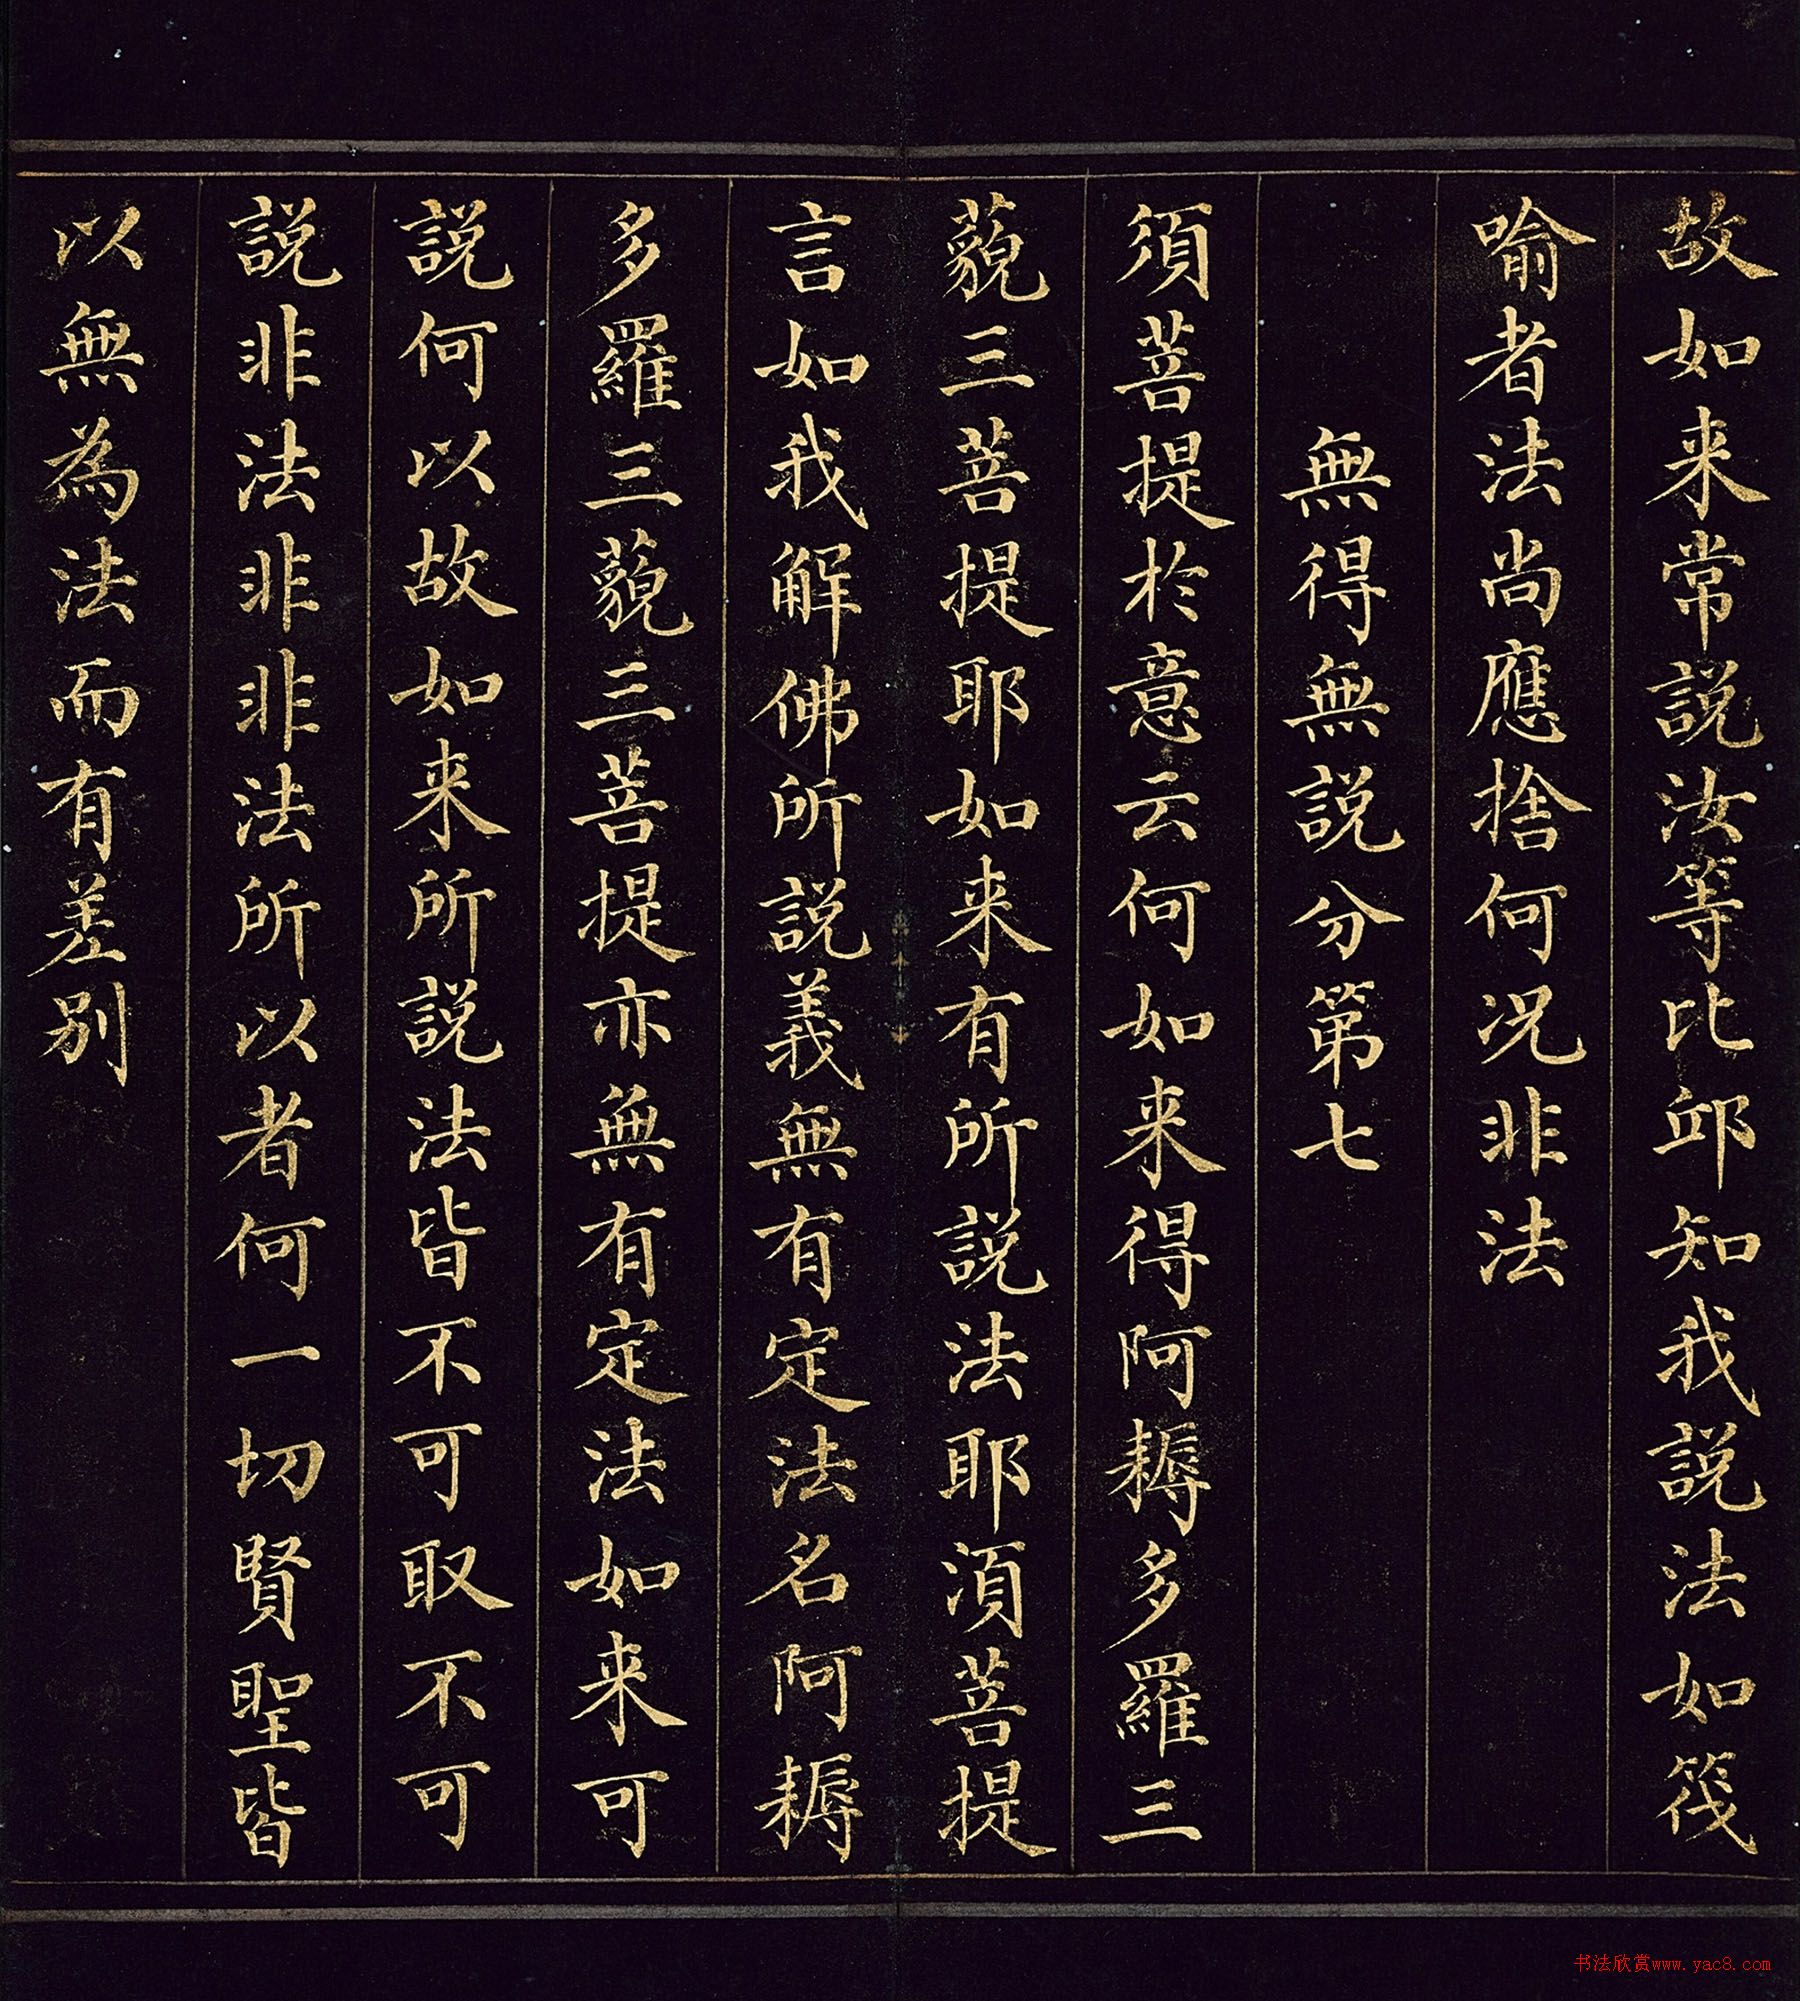 故如来常説汝等比邱知我説法如筏
喻者法尚應捨何況非法
無得無説分第七
須菩提於意云何如来得阿耨多羅三
藐三菩提耶如来有所説法耶須菩提
言如我解佛所説義無有定法名阿耨
多羅三藐三菩提亦無有定法如来可
説何以故如来所説法皆不可取不可
説非法非非法所以者何一切賢聖皆
以無為法而有差別
书法欣赏www.yac8.com